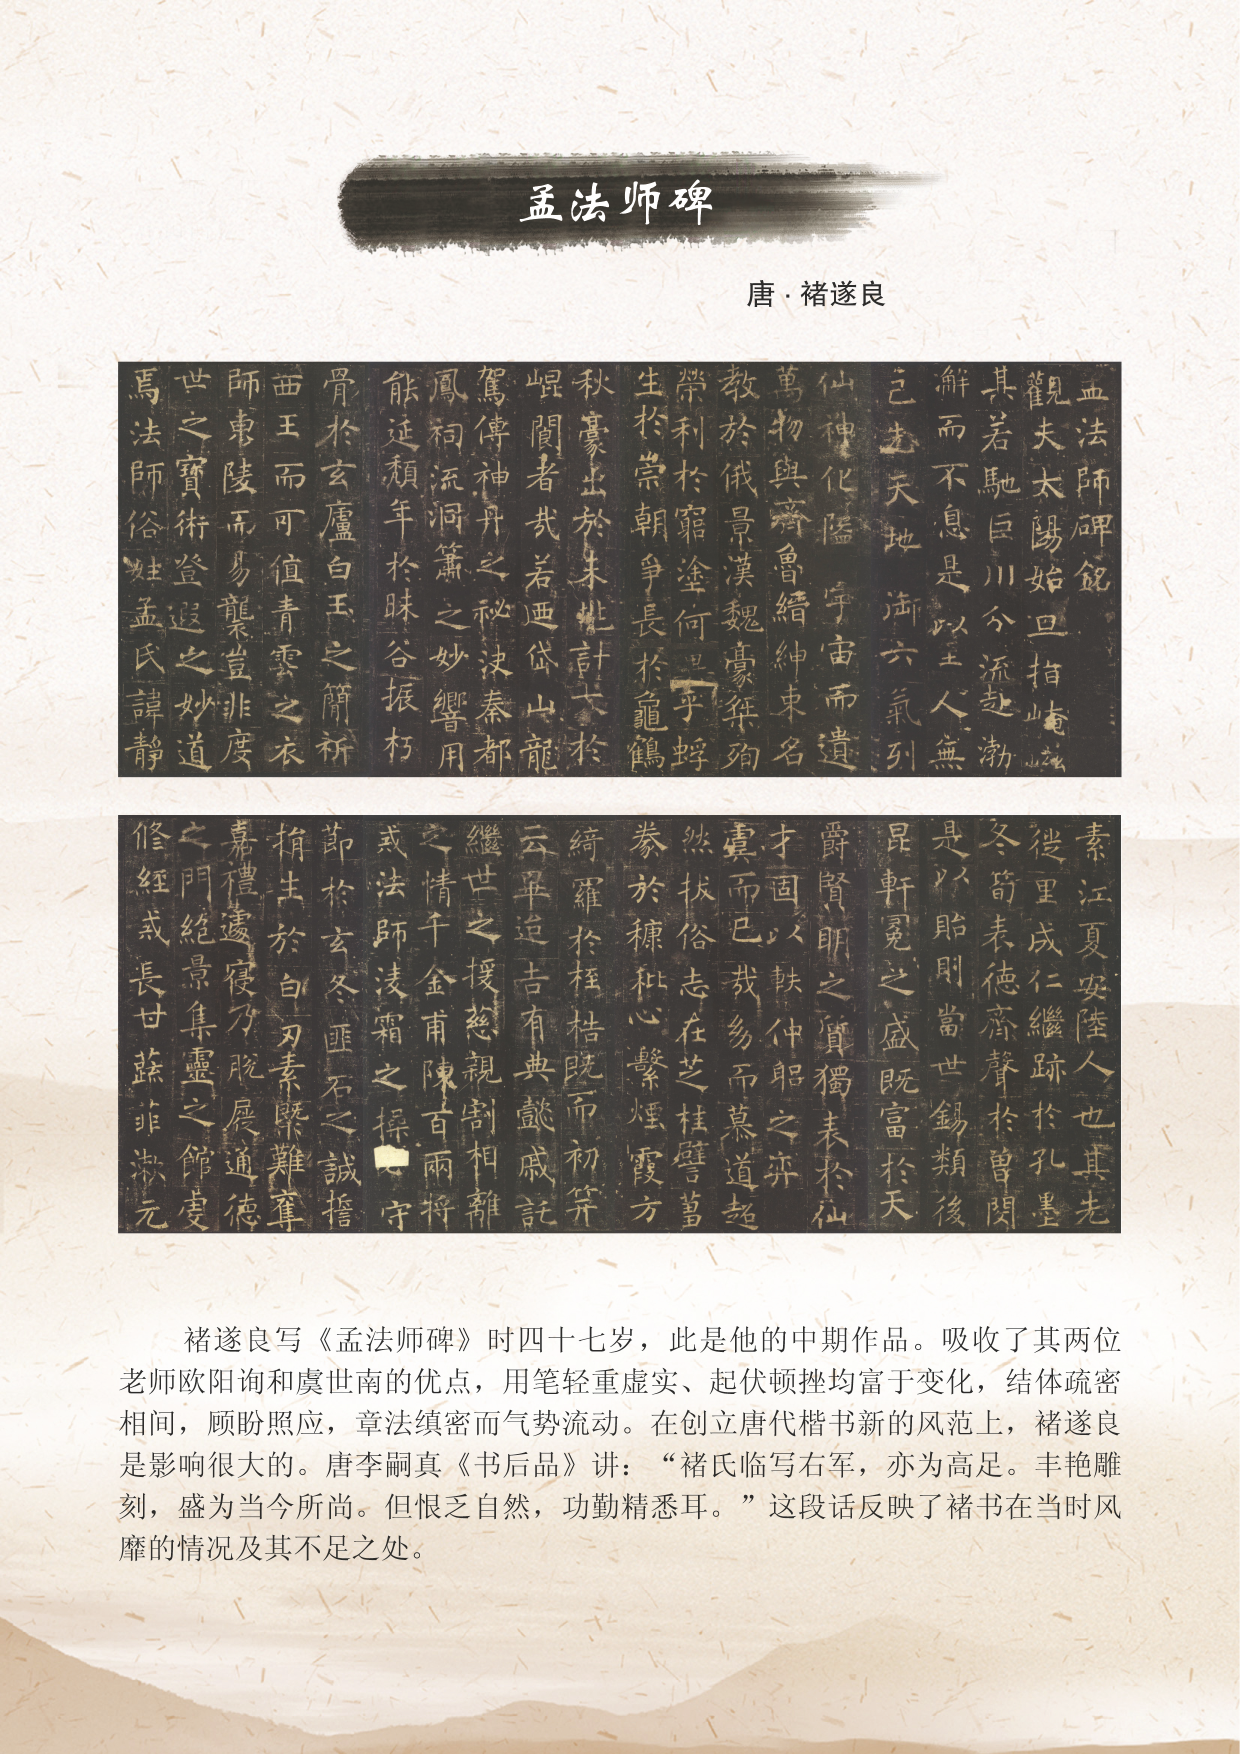 孟法师碑
唐·褚遂良
孟法師碑銘
觀夫太陽始旦指崦嵫
其若馳巨川分流赴渤
澥而不息是以至人無
己先天地御六氣列
仙神化隘宇宙而遺
萬物與齊魯縉紳束名
教於俄景漢魏豪桀殉
榮利於窮塗何異乎蜉
生於崇朝爭長於龜鶴
秋豪出於未兆計大於
崐閬者哉若迺岱山龍
駕傳神丹之祕決秦都
鳳祠流洞簫之妙響用
能延頹年於昧谷振朽
骨於玄廬白玉之簡祈
西王而可值青雲之衣
師東陵而易襲豈非度
世之寶術登遐之妙道
焉法師俗姓孟氏諱靜
素江夏安陸人也其先
徙里成仁繼跡於孔墨
冬筍表德齊聲於曾閔
是以貽則當世錫類後
昆軒冕之盛既富於天
爵賢明之質獨表於仙
才固以軼仲躬之弈
而已哉幼而慕道超
然拔俗志在芝桂譬蒭
豢於糠秕心繫煙霞方
綺羅於桎梏既而初笄
云畢迨吉有典懿戚託
繼世之援慈親割相離
之情千金甫陳百兩將
戒法師淩霜之操守
節於玄冬匪石之誠誓
捐生於白刃素槩難奪
嘉禮遽寢乃脫屣通德
之門絕景集靈之館虔
修經戒長甘蔬菲漱元
褚遂良写《孟法师碑》时四十七岁，此是他的中期作品。吸收了其两位
老师欧阳询和虞世南的优点，用笔轻重虚实、起伏顿挫均富于变化，结体疏密
相间，顾盼照应，章法缜密而气势流动。在创立唐代楷书新的风范上，褚遂良
是影响很大的。唐李嗣真《书后品》讲：“褚氏临写右军，亦为高足。丰艳雕
刻，盛为当今所尚。但恨乏自然，功勤精悉耳。”这段话反映了褚书在当时风
靡的情况及其不足之处。